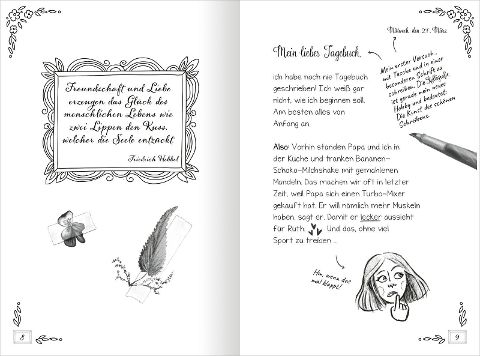 Freundschaft und Liebe
erzeugen das Glück des
menschlichen Lebens wie
zwei Lippen den Kuss,
welcher die Seele entzückt
Friedrich Hebbel
8
Mittwoch, der 27. März
Mein liebes Tagebuch,
ich habe noch nie Tagebuch
geschrieben! Ich weiß gar
nicht, wie ich beginnen soll.
Am besten alles von
Anfang an.
Mein erster Versuch,
mit Tusche und in einer
besonderen Schrift zu
schreiben. Die Kalligrafie
ist gerade mein neues
Hobby und bedeutet:
Die Kunst des schönen
Schreibens.
Also: Vorhin standen Papa und ich in
der Küche und tranken Bananen-
Schoko-Milchshake mit gemahlenen
Mandeln. Das machen wir oft in letzter
Zeit, weil Papa sich einen Turbo-Mixer
gekauft hat. Er will nämlich mehr Muskeln
haben, sagt er. Damit er lecker aussieht
für Ruth. Und das, ohne viel
Sport zu treiben ...
Hm, wenn das
mal klappt!
9